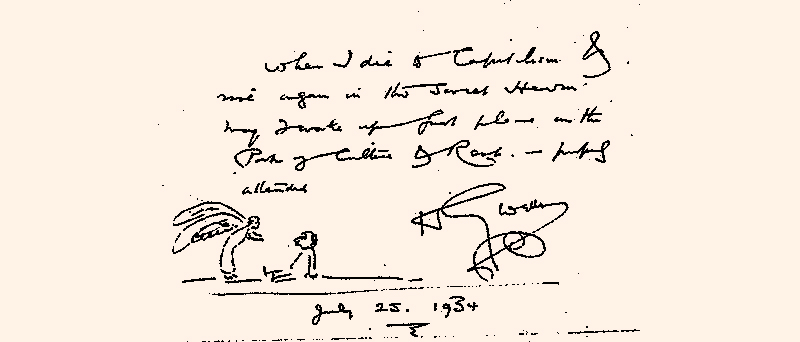 When I die to Capitalism &
rise again in the Soviet Heaven
may I wake up first please in the
Park of Culture & Rest. — properly
attended
H. G. Wells
July 25. 1934